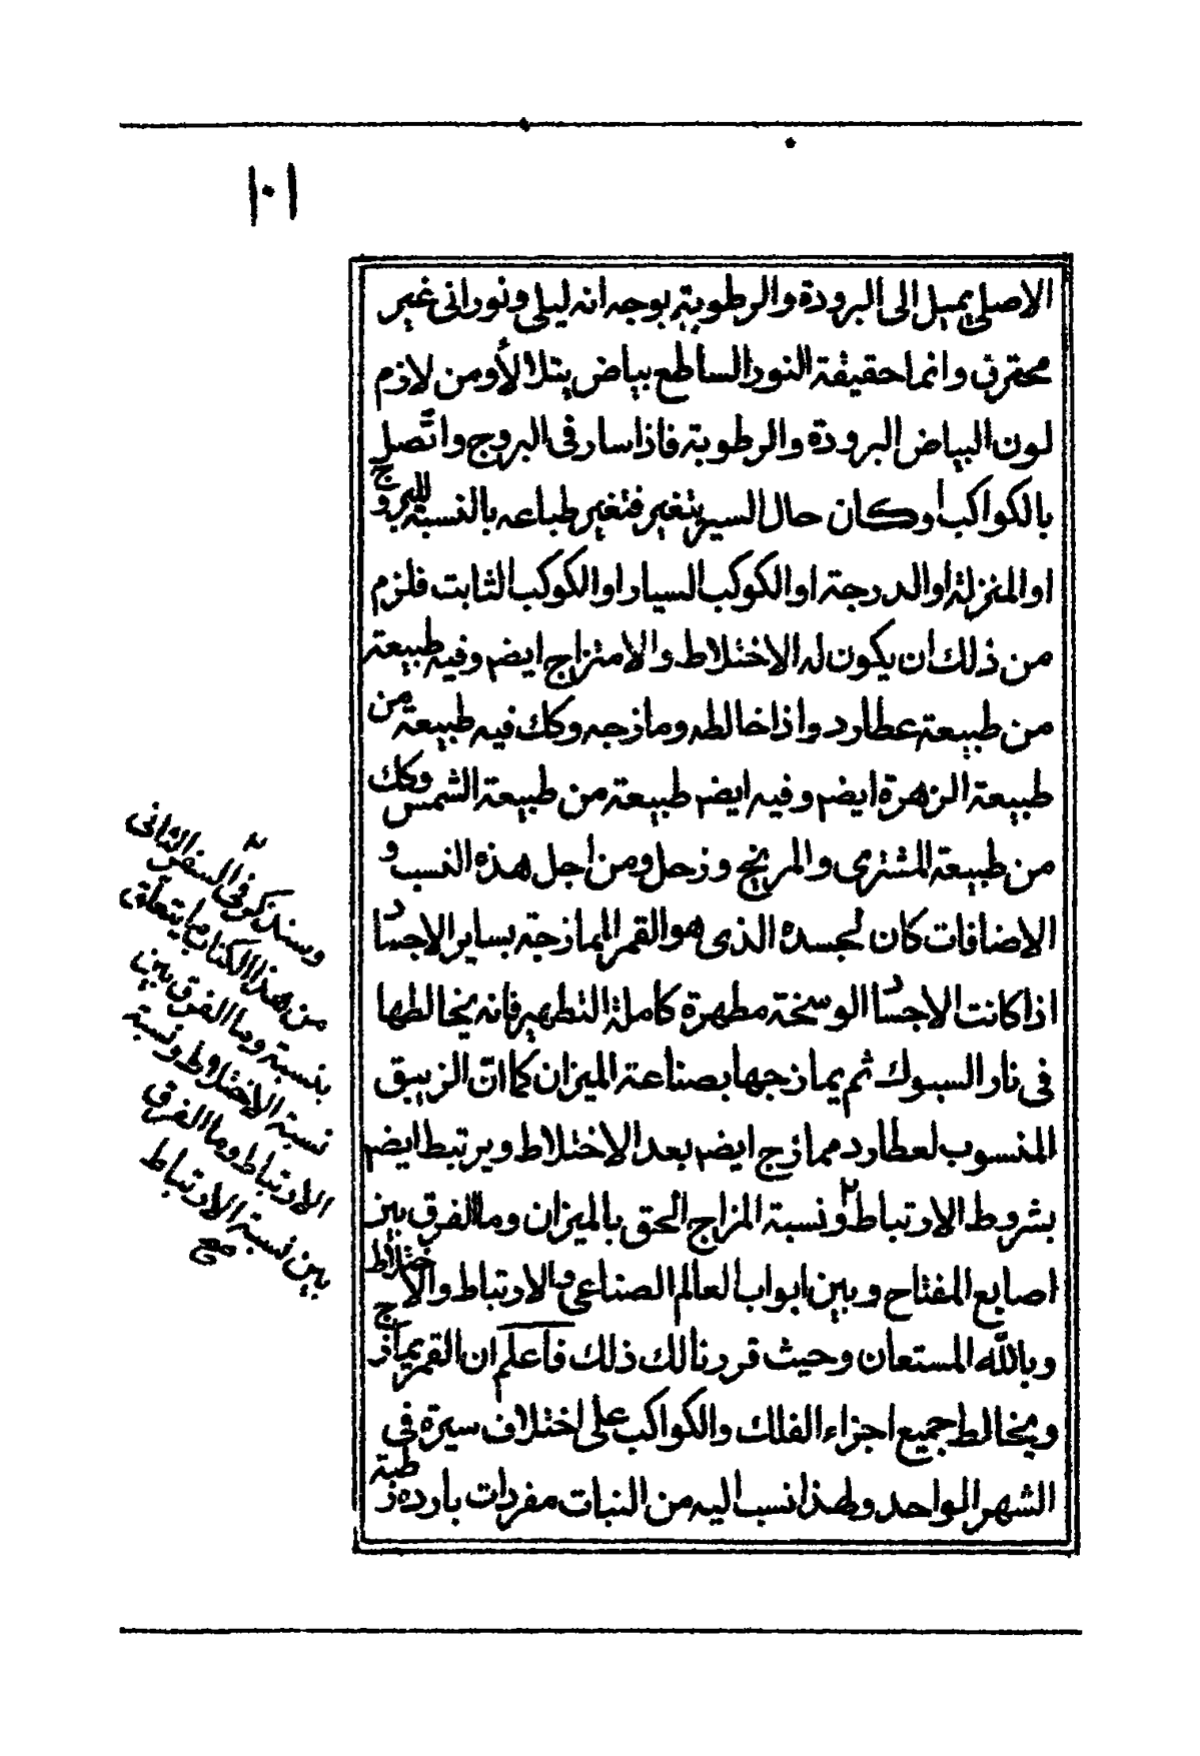 ١٠١
الاصلى يميل الى البرودة والرطوبة بوجه انه ليلى ونورانى غير
محترق وانما حقيقة النور الساطع بياض يتلألأ ومن لازم
لون البياض البرودة والرطوبة فاذا سار فى البروج واتّصل
بالكواكب اوكان حال السير يتغير فتغير طباعه بالنسبة للبروج
او المنزلة او الدرجة او الكوكب السيار او الكوكب الثابت فلزم
من ذلك ان يكون له الاختلاط والامتزاج ايضم وفيه طبيعة
من طبيعة عطارد واذا خالطه ومازجه وكك فيه طبيعة من
طبيعة الزهرة ايضم وفيه ايضم طبيعة من طبيعة الشمس وكك
من طبيعة المشترى والمريخ وزحل ومن اجل هذه النسب و
الاضافات كان لجسده الذى هو القمر الممازجة بساير الاجساد
اذا كانت الاجساد الوسخة مطهرة كاملة التطهير فانه يخالطها
فى نار السبوك ثم يمازجها بصناعة الميزان كما انّ الزيبق
المنسوب لعطارد ممازج ايضم بعد الاختلاط ويرتبط ايضم
بشروط الارتباط ٢ ونسبة المزاج الحق بالميزان وما الفرق بين
اصابع المفتاح وبين ابواب العالم الصناعى وبالارتباط والاختلاط
وبالله المستعان وحيث قررنا لك ذلك فاعلم ان القمر يمازج
ويخالط جميع اجزاء الفلك والكواكب على اختلاف سيرة فى
الشهر الواحد ولهذا نسب اليه من النبات مفردات بارده رطبة
٢
وسنذكر فى السفر الثانى
من هذا الكتاب ما يتعلق
بنسبة وما الفرق بين
نسبة الاختلاط ونسبة
الارتباط وما الفرق
بين نسبة الارتباط
صح